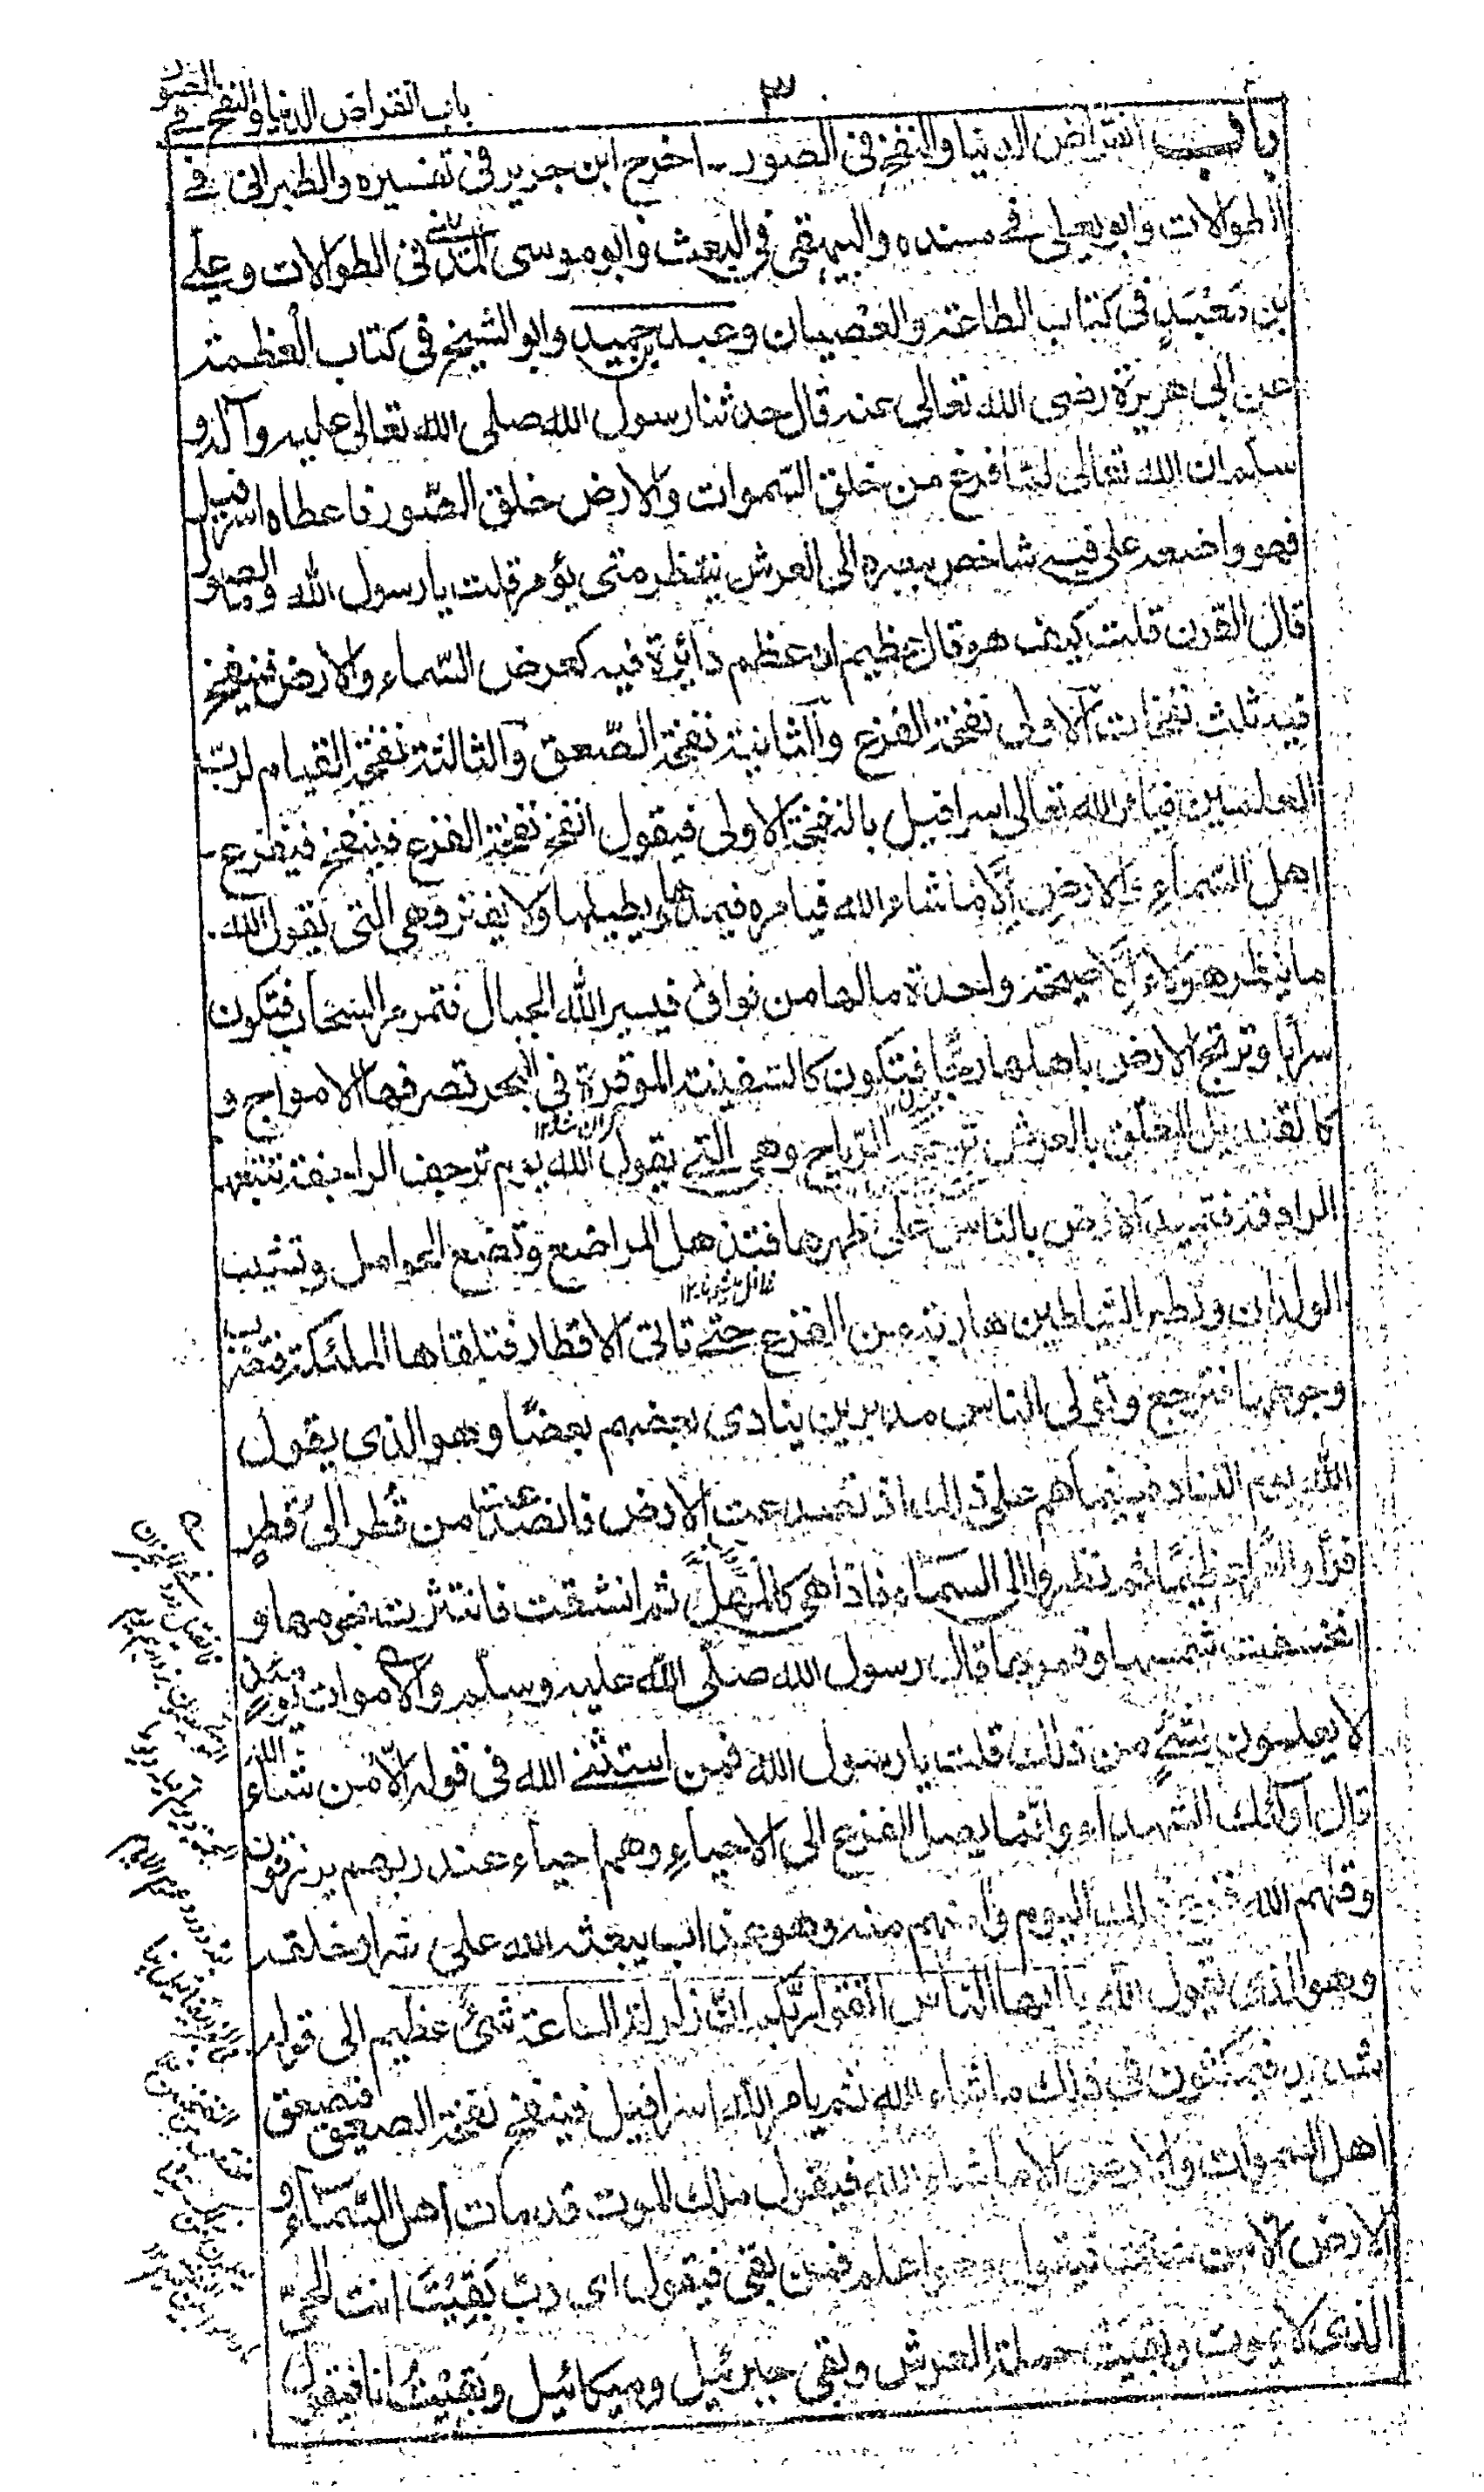 ٣
باب انقراض الدنيا والنفخ في الصور
باب انقراض الدنيا والنفخ فى الصور۔ اخرج ابن جرير فى تفسيره والطبرانى فے
الطوالات وابويعلى فے مسنده والبيهقى فى البعث وابوموسى المدينى فى الطوالات وعلے
بن معبد فى كتاب الطاعة والعصيان وعبد بن حميد وابوالشيخ فى كتاب العظمة
عن ابى هريرة رضى الله تعالى عنه قال حدثنا رسول الله صلى الله تعالى عليه وآله و
سلم ان الله تعالى لما فرغ من خلق السموات والارض خلق الصور فاعطاه اسرافيل
فهو واضعه على فيه شاخص ببصره الى العرش ينتظر متى يؤمر قلت يا رسول الله وما الصور
قال القرن قلت كيف هو قال عظيم ان عظم دائرة فيه كعرض السماء والارض فينفخ
فيه ثلث نفخات الاولى نفخة الفزع والثانية نفخة الصعق والثالثة نفخة القيام لرب
العلمين فيامر الله تعالى اسرافيل بالنفخة الاولى فيقول انفخ نفخة الفزع فينفخ فيفزع
اهل السماء والارض الا ما شاء الله فيامره فيمدها ويطيلها ولا يفتر وهى التى يقول الله
ما ينظر هؤلاء الا صيحة واحدة مالها من فواق فيسير الله الجبال فتمر مر السحاب فتكون
سرابا وترتج الارض باهلها رجا فتكون كالسفينة الموقرة فى البحر تصرفها الامواج و
كالقنديل المعلق بالعرش ترجحه الرياح وهى التے يقول الله يوم ترجف الراجفة تتبعها
الرادفة فتميد الارض بالناس على ظهرها فتذهل المراضع وتضع الحوامل وتشيب
الولدان وتطير الشياطين هاربة من الفزع حتے تاتى الاقطار فتلقاها الملئكة فتضرب
وجوهها فترجع وتولى الناس مدبرين ينادى بعضهم بعضا وهو الذى يقول
الله يوم التناد فبينما هم على ذلك اذ تصدعت الارض فانصدعت من قطر الى قطر
فرأوا امرا عظيما ثم نظروا الى السماء فاذا هى كالمهل ثم انشقت فانتثرت نجومها و
انخسفت شمسها وقمرها قال رسول الله صلى الله عليه وسلم والاموات يومئذ
لا يعلمون بشئ من ذلك قلت يا رسول الله فمن استثنے الله فى قوله الا من شاء الله
قال اولئك الشهداء وانما يصل الفزع الى الاحياء وهم احياء عند ربهم يرزقون
وقاهم الله فزع ذلك اليوم وامنهم منه وهو عذاب يبعثه الله على شرار خلقه
وهو الذى يقول الله يا ايها الناس اتقوا ربكم ان زلزلة الساعة شئ عظيم الى قوله
شديد فيمكثون فى ذلك ما شاء الله ثم يامر الله اسرافيل فينفخ نفخة الصعق فصعق
اهل السموات والارض الا ما شاء الله فيقول ملك الموت قد مات اهل السماء و
الارض الا من شئت فيقول وهو اعلم فمن بقى فيقول اى رب بقيت انت الحى
الذى لا يموت وبقيت حملة العرش وبقى جبرئيل وميكائيل وبقيت انا فيقول